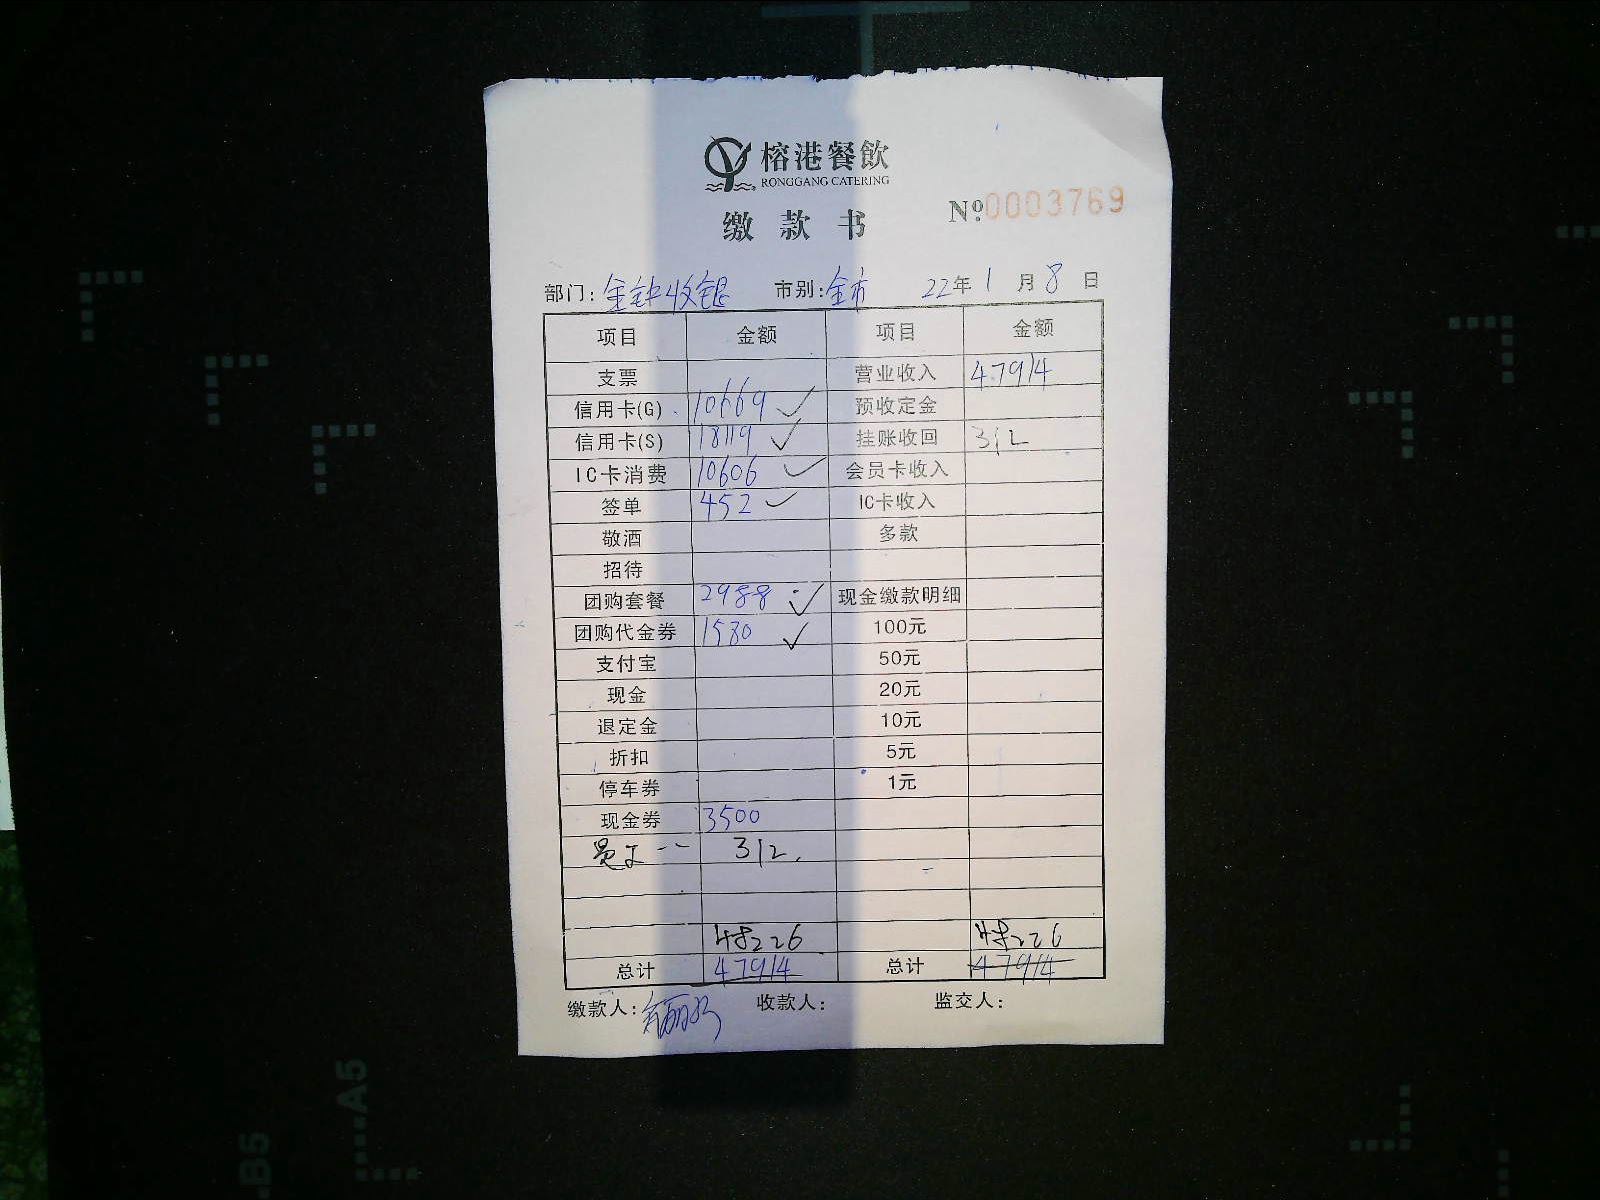 榕港餐飲
RONGGANG CATERING
缴款书 Nº:0003769
部门:金钟收银 市别:全市 22年1月8日
项目 金额 项目 金额
支票 营业收入 47914
信用卡(G) 10669 预收定金
信用卡(S) 18119 挂账收回 312
IC卡消费 10606 会员卡收入
签单 452 IC卡收入
敬酒 多款
招待
团购套餐 2988 现金缴款明细
团购代金券 1580 100元
支付宝 50元
现金 20元
退定金 10元
折扣 5元
停车券 1元
现金券 3500
员工 312
48226 48226
总计 47914 总计 47914
缴款人: 收款人: 监交人:
A5
B5